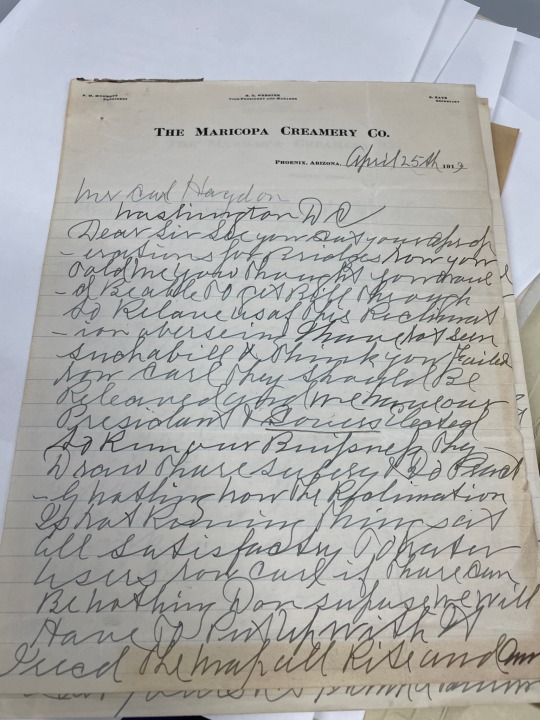 VICE-PRESIDENT AND MANAGER
THE MARICOPA CREAMERY CO.
PHOENIX, ARIZONA, April 25th 1919
Mr Carl Haydon
Washington D C
Dear Sir See you cut your aprop
-erations for Bridges now you
told me you thought you would
Be able to get Bill through
to Relave us of this Reclimat
-ion overseing I have not seen
such a bill & think you failed
now Carl they should Be
Releaved and we have our
Presidant & Govners Elected
to Run our Buisness they
Draw thare sulery & do
nothing now the Reclimation
Is not Running things at
all Satisfactry To water
users now Carl if thare can
Be nothing Don supose we will
Have to Put up with it
feed them all Rite and